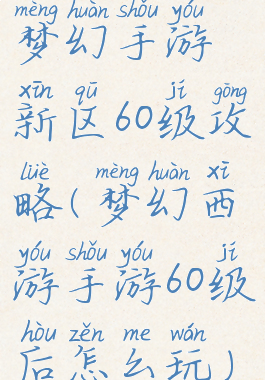 mèng huàn shǒu yóu
梦幻手游
xīn qū jí gōng
新区60级攻
lüè mèng huàn xī
略(梦幻西
yóu shǒu yóu jí
游手游60级
hòu zěn me wán
后怎么玩)